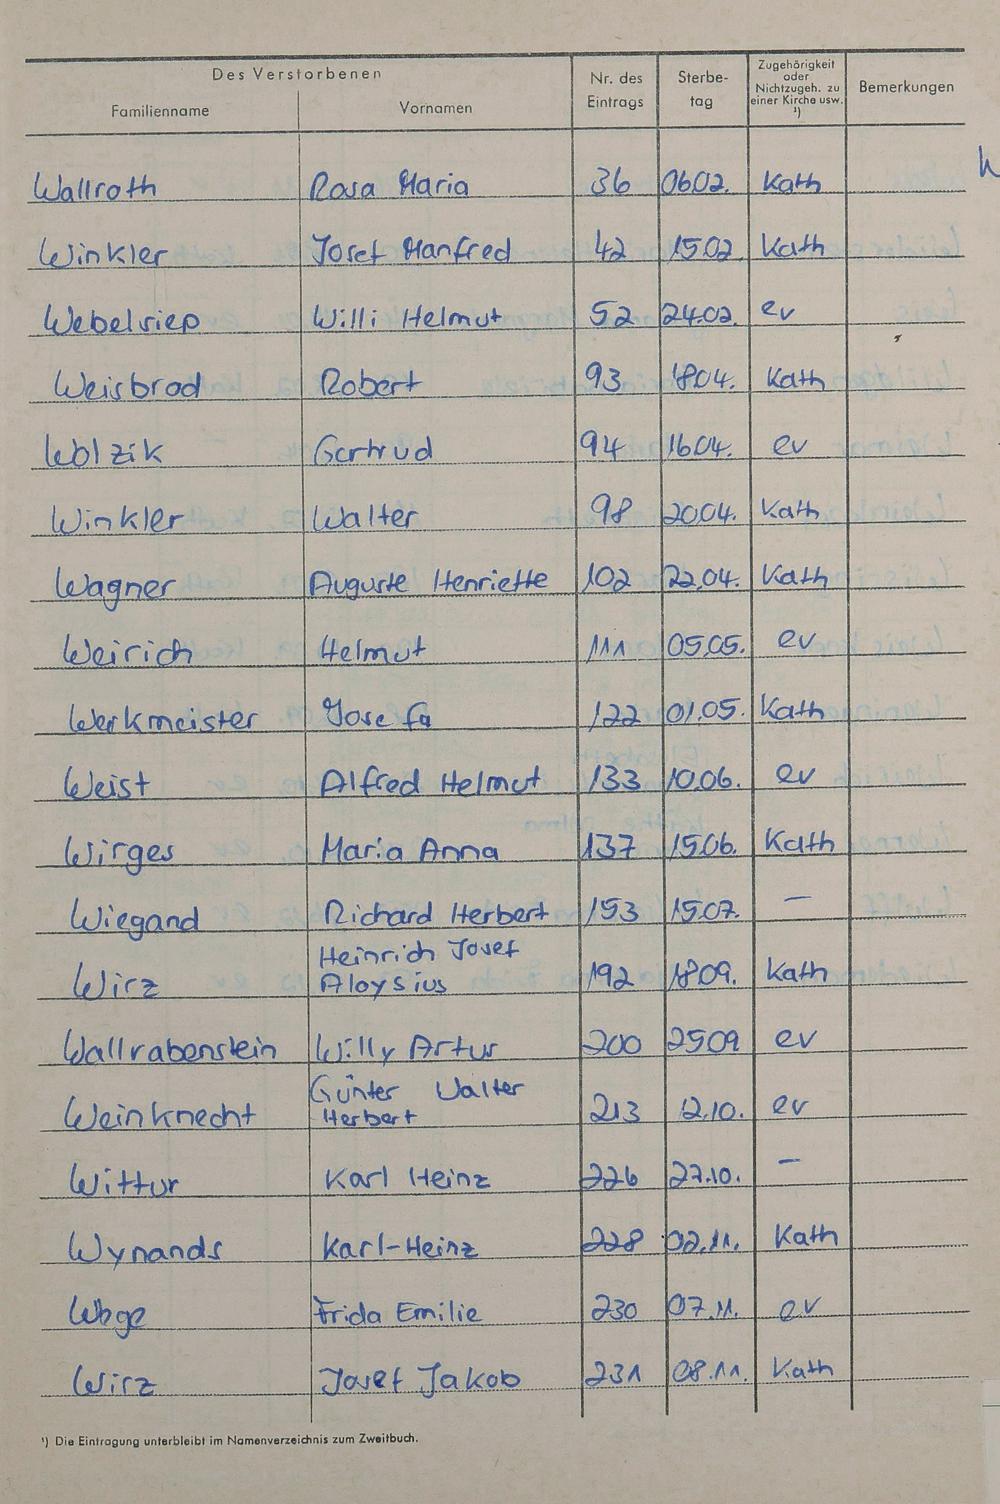 Des Verstorbenen
Familienname Vornamen Nr. des Eintrags Sterbe-tag Zugehörigkeit oder Nichtzugeh. zu einer Kirche usw. ¹) Bemerkungen
Wallroth Rosa Maria 36 06.02. Kath
Winkler Josef Manfred 42 15.02. Kath
Webelsiep Willi Helmut 52 24.02. ev
Weisbrod Robert 93 18.04. Kath
Wolzik Gertrud 94 16.04. ev
Winkler Walter 98 20.04. Kath
Wagner Auguste Henriette 102 22.04. Kath
Weirich Helmut 111 05.05. ev
Werkmeister Josefa 122 01.05. Kath
Weist Alfred Helmut 133 10.06. ev
Wirges Maria Anna 137 15.06. Kath
Wiegand Richard Herbert 153 15.07. —
Heinrich Josef
Wirz Aloysius 192 18.09. Kath
Wallrabenstein Willy Artur 200 25.09 ev
Günter Walter
Weinknecht Herbert 213 12.10. ev
Wittur Karl Heinz 226 27.10. —
Wynands Karl-Heinz 228 02.11. Kath
Frida Emilie 230 07.11. ev
Wirz Josef Jakob 231 08.11. Kath
¹) Die Eintragung unterbleibt im Namenverzeichnis zum Zweitbuch.